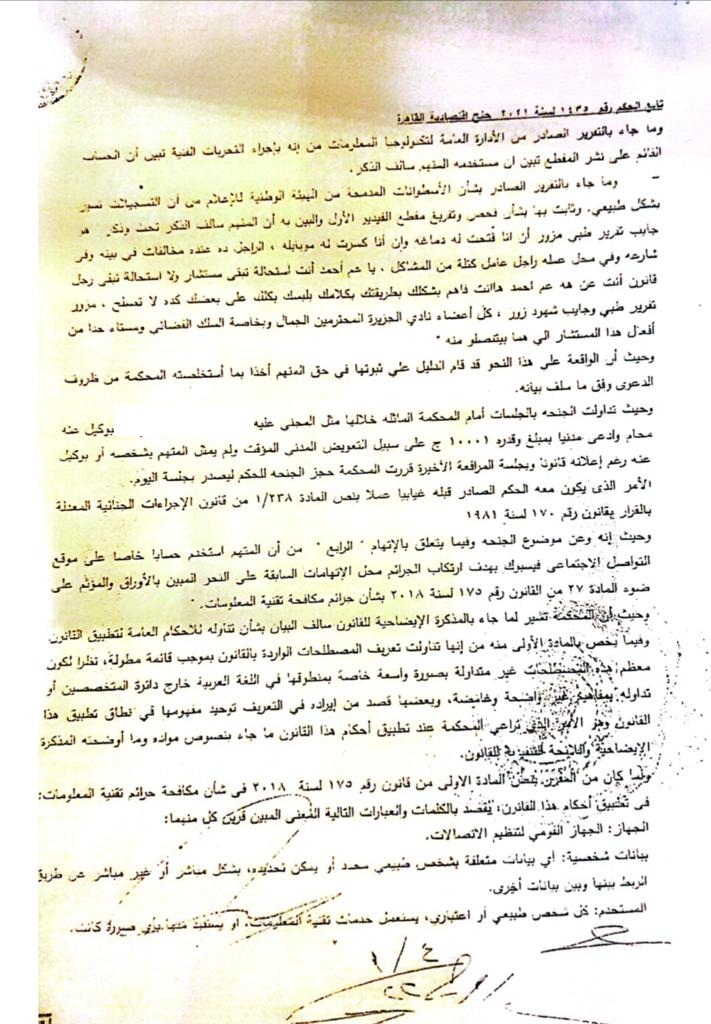 تابع الحكم رقم ١٤٣٥ لسنة ٢٠٢١ جنح اقتصادية القاهرة
وما جاء بالتقرير الصادر من الأدارة العامة لتكنولوجيا المعلومات من إنه بإجراء التحريات الفنية تبين أن الحساب
القائم على نشر المقطع تبين ان مستخدمه المتهم سالف الذكر.
- وما جاء بالتقرير الصادر بشأن الأسطوانات المدمجة من الهيئة الوطنية للإعلام من أن التسجيلات تسير
بشكل طبيعي. وثابت بها بشأن فحص وتفريغ مقطع الفيديو الأول والبين به أن المتهم سالف الذكر تحدث وذكر " هو
جايب تقرير طبي مزور أن انا فتحت له دماغه وإن أنا كسرت له موبايله ، الراجل ده عنده مخالفات في بيته وفى
شارعه وفي محل عمله راجل عامل كتلة من المشاكل ، يا عم أحمد أنت استحالة تبقى مستشار ولا استحالة تبقى رجل
قانون أنت عن هه عم احمد هاانت فاهم بشكلك بطريقتك بكلامك بلبسك بكلك على بعضك كده لا تصلح ، مزور
تقرير طبي وجايب شهود زور ، كل أعضاء نادي الجزيرة المحترمين الجمال وبخاصة السلك القضائي ومستاء جدا من
أفعال هذا المستشار الي هما بيتنصلو منه "
وحيث أن الواقعة علي هذا النحو قد قام الدليل علي ثبوتها في حق المتهم أخذا بما أستخلصته المحكمة من ظروف
الدعوى وفق ما سلف بيانه.
وحيث تداولت الجنحه بالجلسات أمام المحكمة الماثله خلالها مثل المجنى عليه بوكيل عنه
محام وادعى مدنيا بمبلغ وقدره ١٠٠٠١ ج على سبيل التعويض المدنى المؤقت ولم يمثل المتهم بشخصه أو بوكيل
عنه رغم إعلانه قانونا وبجلسة المرافعة الأخيرة قررت المحكمة حجز الجنحه للحكم ليصدر بجلسة اليوم.
الأمر الذى يكون معه الحكم الصادر قبله غيابيا عملا بنص المادة ١/٢٣٨ من قانون الإجراءات الجنائية المعدلة
بالقرار بقانون رقم ١٧٠ لسنة ١٩٨١
وحيث إنه وعن موضوع الجنحه وفيما يتعلق بالإتهام " الرابع " من أن المتهم استخدم حسابا خاصا على موقع
التواصل الاجتماعى فيسبوك بهدف ارتكاب الجرائم محل الإتهامات السابقة على النحر المبين بالأوراق والمؤثم على
ضوء المادة ٢٧ من القانون رقم ١٧٥ لسنة ٢٠١٨ بشأن جرائم مكافحة تقنية المعلومات.
وحيث أن المحكمة تشير لما جاء بالمذكرة الإيضاحية للقانون سالف البيان بشأن تناوله للاحكام العامة لتطبيق القانون
وفيما يخص بالمادة الأولى منه من إنها تناولت تعريف المصطلحات الواردة بالقانون بموجب قائمة مطولة، نظرا لكون
معظم هذه المصطلحات غير متداولة بصورة واسعة خاصة بمنطوقها في اللغة العربية خارج دائرة المتخصصين أو
تداوله بمفاهيم غير واضحة وغامضة، وبعضها قصد من إيراده في التعريف توحيد مفهومها في نطاق تطبيق هذا
القانون وهو الأمر الذي تراعي المحكمة عند تطبيق أحكام هذا القانون ما جاء بنصوص مواده وما أوضحته المذكرة
الإيضاحية واللائحة التنفيذية للقانون.
ولما كان من المقرر بنص المادة الاولى من قانون رقم ١٧٥ لسنة ٢٠١٨ فى شأن مكافحة جرائم تقنية المعلومات:
فى تطبيق أحكام هذا القانون، يقصد بالكلمات والعبارات التالية المعنى المبين قرين كل منهما:
الجهاز: الجهاز القومي لتنظيم الاتصالات.
بيانات شخصية: أي بيانات متعلقة بشخص طبيعي محدد أو يمكن تحديده، بشكل مباشر أو غير مباشر عن طريق
الربط بينها وبين بيانات أخرى.
المستخدم: كل شخص طبيعي أو اعتباري، يستعمل خدمات تقنية المعلومات، او يستفيد منها بأي صورة كانت.